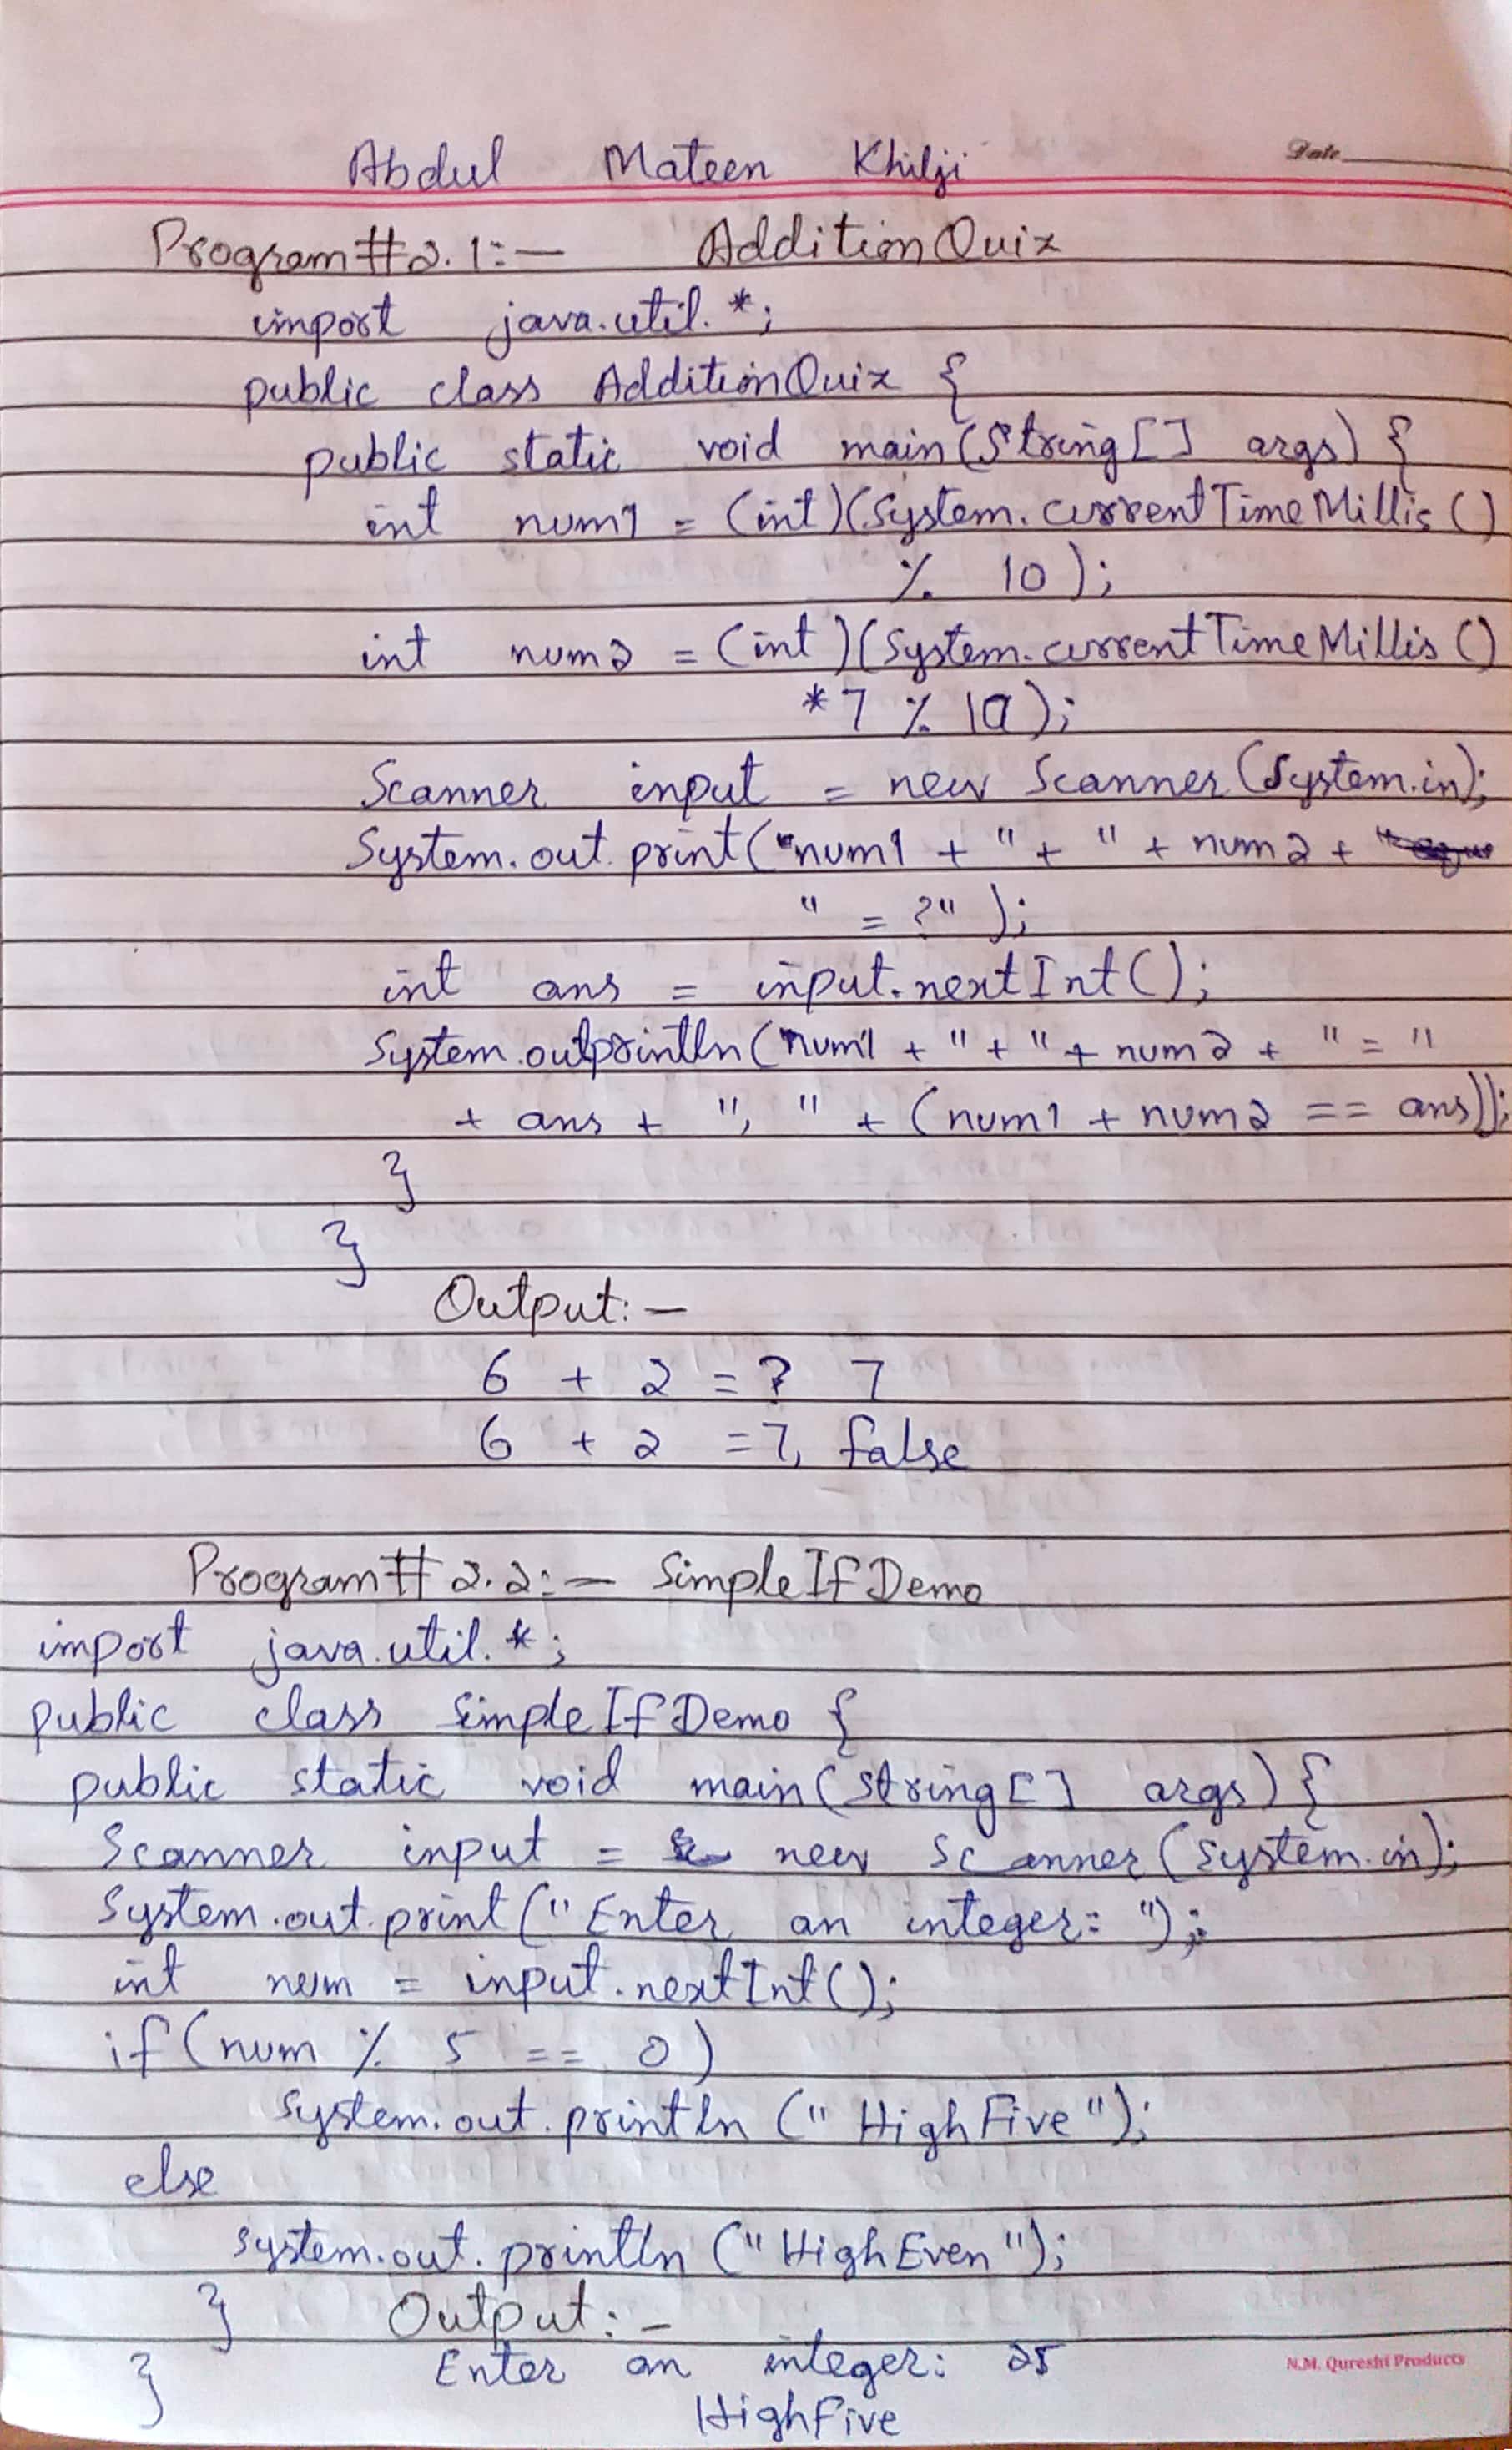 Abdul Mateen Khilji
Date
Program # 2.1:- AdditionQuiz
import java.util.*;
public class AdditionQuiz {
public static void main(String[] args) {
int num1 = (int)(System.currentTimeMillis()
% 10);
int num2 = (int)(System.currentTimeMillis()
*7 % 10);
Scanner input = new Scanner(System.in);
System.out.print(num1 + " + " + num2 +
" = ?" );
int ans = input.nextInt();
System.outprintln(num1 + " + " + num2 + " = "
+ ans + ", " + (num1 + num2 == ans));
}
}
Output:-
6 + 2 = ? 7
6 + 2 = 7, false
Program # 2.2:- SimpleIfDemo
import java.util.*;
public class SimpleIfDemo {
public static void main(String[] args) {
Scanner input = new Scanner(System.in);
System.out.print("Enter an integer: ");
int num = input.nextInt();
if(num % 5 == 0)
System.out.println ("HighFive");
else
System.out.println ("HighEven");
} Output:-
} Enter an integer: 25
HighFive
N.M. Qureshi Products